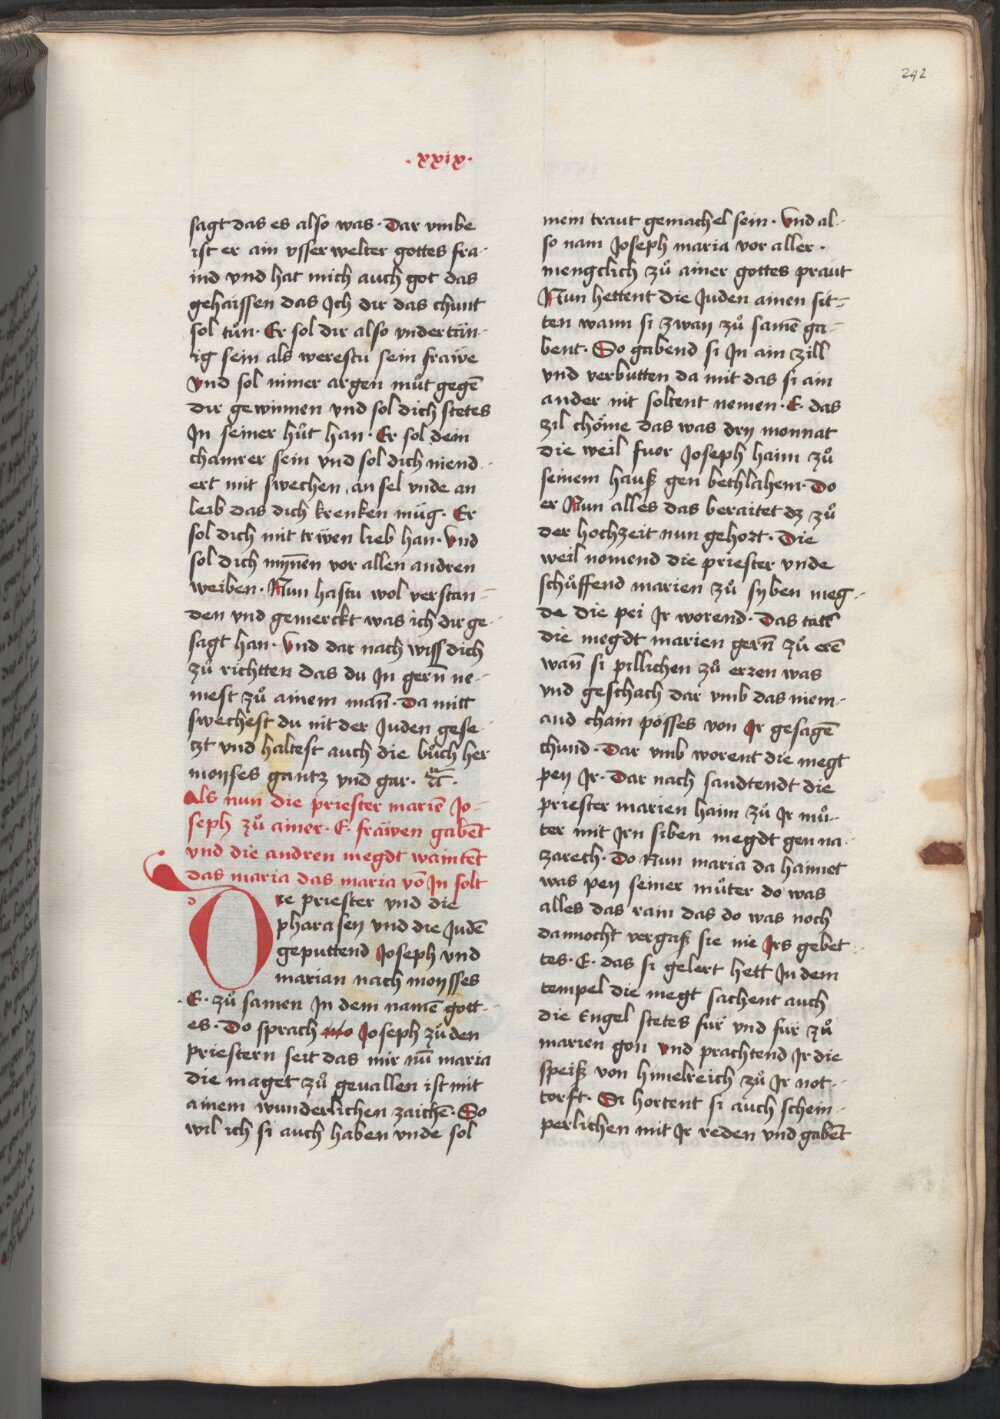 242
·xxix·
sagt das es also was· Dar vmbe
ist er ain vsser welter gottes fra-
ind vnd hat mich auch got das
gehaissen das Jch dir das chunt
sol tůn· Er sol dir also vndertän-
ig sein als werestu sein frawe
vnd sol nimer argen můt gegē
dir gewinnen vnd sol dich stetes
Jn seiner hůt han· Er sol dein
chamrer sein vnd sol dich niend-
ert mit swechen an sel vnde an
leib das dich krenken müg· Er
sol dich mit trẅen lieb han· vnd
sol dich mỹnen vor allen andren
weiben· Nun hastu wol verstan-
den vnd gemerckt was ich dir ge-
sagt han· vnd dar nach wiss dich
zů richtten das du Jn gerñ ne-
mest zů ainem mañ· Da mitt
swechest du nit der Juden gese-
tzt vnd haltest auch die bůch her
moyses gantz vnd gar·
Als nun die priester mariē Jo-
seph zů ainer· E· frawen gabēt
vnd die andren megdt waintēt
das maria das maria vō Jn solt
re priester vnd die
pharaseÿ vnd die Judē
geputtend Joseph vnd
marian nach moysses
·E· zů samen Jn dem namē gott-
es· Do sprach Joseph zů den
priestern seit das mir nū maria
die maget zů geuallen ist mit
ainem wunderlichen zaichē· So
wil ich si auch haben vnde sol
mein traut gemachel sein· vnd al-
so nam Joseph maria vor aller·
mengclich zů ainer gottes praut
Nun hettent die Juden ainen sit-
ten wann si zway zů samē ga-
bent· So gabend si Jn ain zill
vnd verbutten da mit das si ain
ander nit soltent nemen· E· das
zil chöme das was drÿ monnat
die weil fuor Joseph haim zů
seinem hauß gen bethlahem· Do
er Nun alles das beraitet dz zů
der hochzeit nun gehort· Die
weil nomend die priester vnde
schůffend marien zů syben meg-
de die pei Jr worend· Das tätt
die megdt marien gerñ zů erē
wañ si pillichen zů erzen was
vnd geschach dar vmb das niem-
and cham pösses von Jr gesagē
chund· Dar vmb worent die megt
peÿ Jr· Dar nach sandtendt die
priester marien haim zů Jr můt-
ter mit Jrn siben megdt gen na-
zarech· Do Nun maria da haimet
was peÿ seiner můter do was
alles das rain das do was noch
dannocht vergaß sie nie Jrs gebet
tes· E· das si gelert hett Jn dem
tempel die megt sachent auch
die Engel stetes für vnd für zů
marien gon vnd prachtend Jr die
speiß von himelreich zů Jr not-
torft· Si hortent si auch schein-
perlichen mit Jr reden vnd gabēt